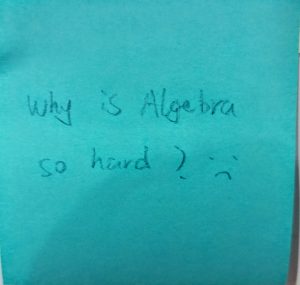 Why is Algebra
so hard? :(